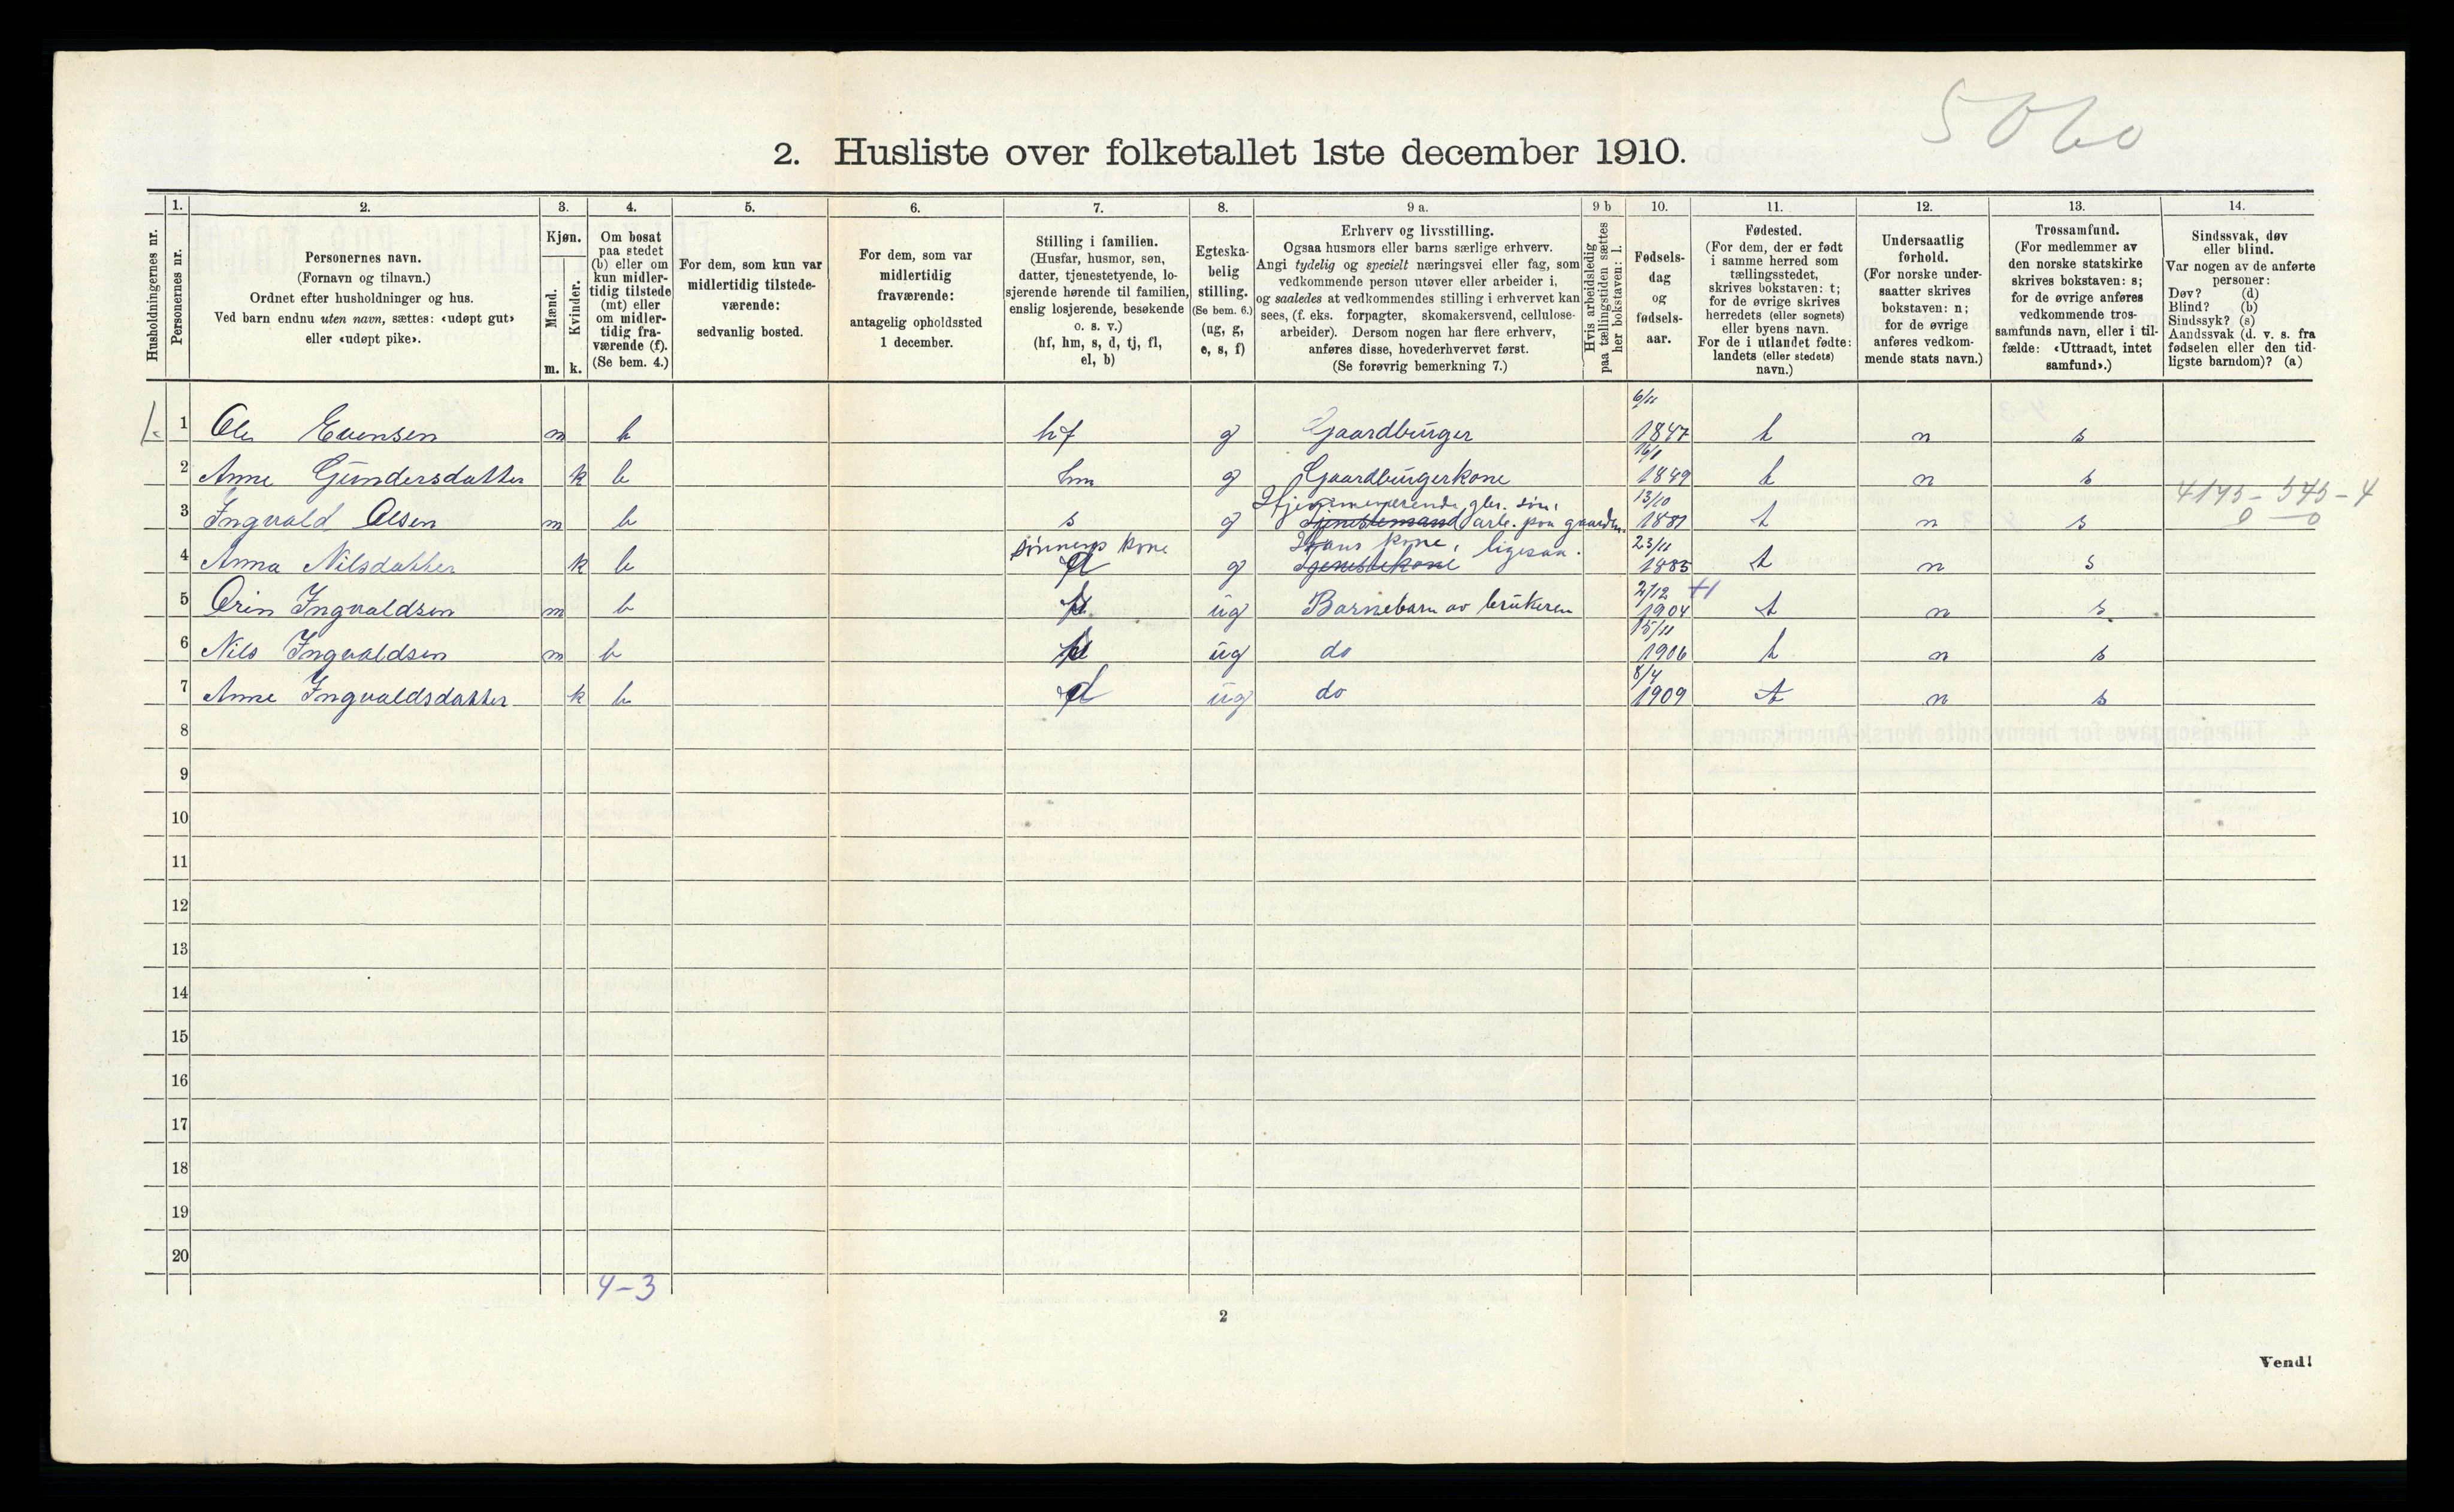 5060
2. Husliste over folketallet 1ste december 1910.
Husholdningernes nr.
1.
Personernes nr.
2.
Personernes navn.
(Fornavn og tilnavn.)
Ordnet efter husholdninger og hus.
Ved barn endnu uten navn, sættes: «udøpt gut»
eller «udøpt pike».
3.
Kjøn.
Mænd.
Kvinder.
m. k.
4.
Om bosat
paa stedet
(b) eller om
kun midler-
tidig tilstede
(mt) eller
om midler-
tidig fra-
værende (f).
(Se bem. 4.)
5.
For dem, som kun var
midlertidig tilstede-
værende:
sedvanlig bosted.
6.
For dem, som var
midlertidig
fraværende:
antagelig opholdssted
1 december.
7.
Stilling i familien.
(Husfar, husmor, søn,
datter, tjenestetyende, lo-
sjerende hørende til familien,
enslig losjerende, besøkende
o. s. v.)
(hf, hm, s, d, tj, fl,
el, b)
8.
Egteska-
belig
stilling.
(Se bem. 6.)
(ug, g,
e, s, f)
9 a.
Erhverv og livsstilling.
Ogsaa husmors eller barns særlige erhverv.
Angi tydelig og specielt næringsvei eller fag, som
vedkommende person utøver eller arbeider i,
og saaledes at vedkommendes stilling i erhvervet kan
sees, (f. eks. forpagter, skomakersvend, cellulose-
arbeider). Dersom nogen har flere erhverv,
anføres disse, hovederhvervet først.
(Se forøvrig bemerkning 7.)
9 b
Hvis arbeidsledig
paa tællingstiden sættes
her bokstaven: l.
10.
Fødsels-
dag
og
fødsels-
aar.
11.
Fødested.
(For dem, der er født
i samme herred som
tællingsstedet,
skrives bokstaven: t;
for de øvrige skrives
herredets (eller sognets)
eller byens navn.
For de i utlandet fødte:
landets (eller stedets)
navn.)
12.
Undersaatlig
forhold.
(For norske under-
saatter skrives
bokstaven: n;
for de øvrige
anføres vedkom-
mende stats navn.)
13.
Trossamfund.
(For medlemmer av
den norske statskirke
skrives bokstaven: s;
for de øvrige anføres
vedkommende tros-
samfunds navn, eller i til-
fælde: «Uttraadt, intet
samfund».)
14.
Sindssvak, døv
eller blind.
Var nogen av de anførte
personer:
Døv? (d)
Blind? (b)
Sindssyk? (s)
Aandssvak (d. v. s. fra
fødselen eller den tid-
ligste barndom)? (a)
1. 1 Ole Evensen m b hf g Gaardbruger 6/11 1847 t n s
2 Anne Gundersdatter k b hm g Gaardbrugerkone 16/1 1849 t n s
3 Ingvald Olsen m b s g Hjemmeværende gbr. søn, Tjenestemand arb. paa gaarden. 13/10 1881 t n s 4145-545-4
0 0
4 Anna Nilsdatter k b sønnens kone d g Hans kone, ligesaa. Tjenestekone 23/11 1885 t n s
5 Orin Ingvaldsen m b ug Barnebarn av brukeren 2/12 1904 t n s
6 Nils Ingvaldsen m b ug do 15/11 1906 t n s
7 Anne Ingvaldsdatter k b d ug do 8/4 1909 t n s
8
9
10
11
12
13
14
15
16
17
18
19
20
4-3
2
Vend!